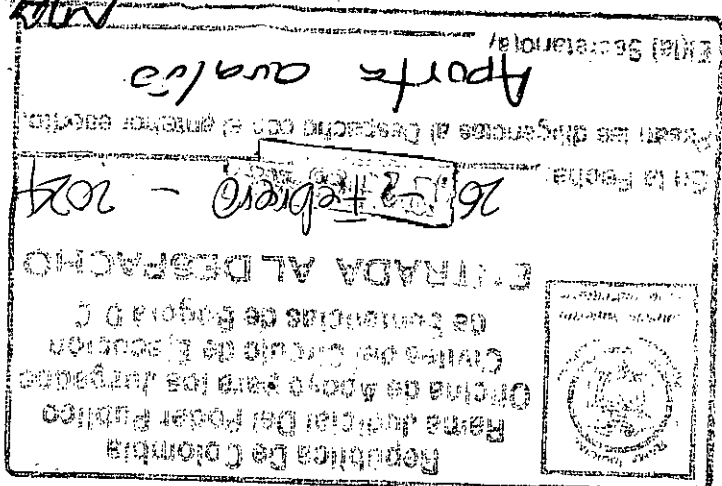 República De Colombia
Rama Judicial Del Poder Público
Oficina de Apoyo para los Juzgados
Civiles del Circuito de Ejecución
de Sentencias de Bogotá D C
ENTRADA AL DESPACHO
En la Fecha: 26 Febrero - 2024
Pasan las diligencias al Despacho con el anterior escrito.
Aporta avaluo
El(la) Secretario(a)